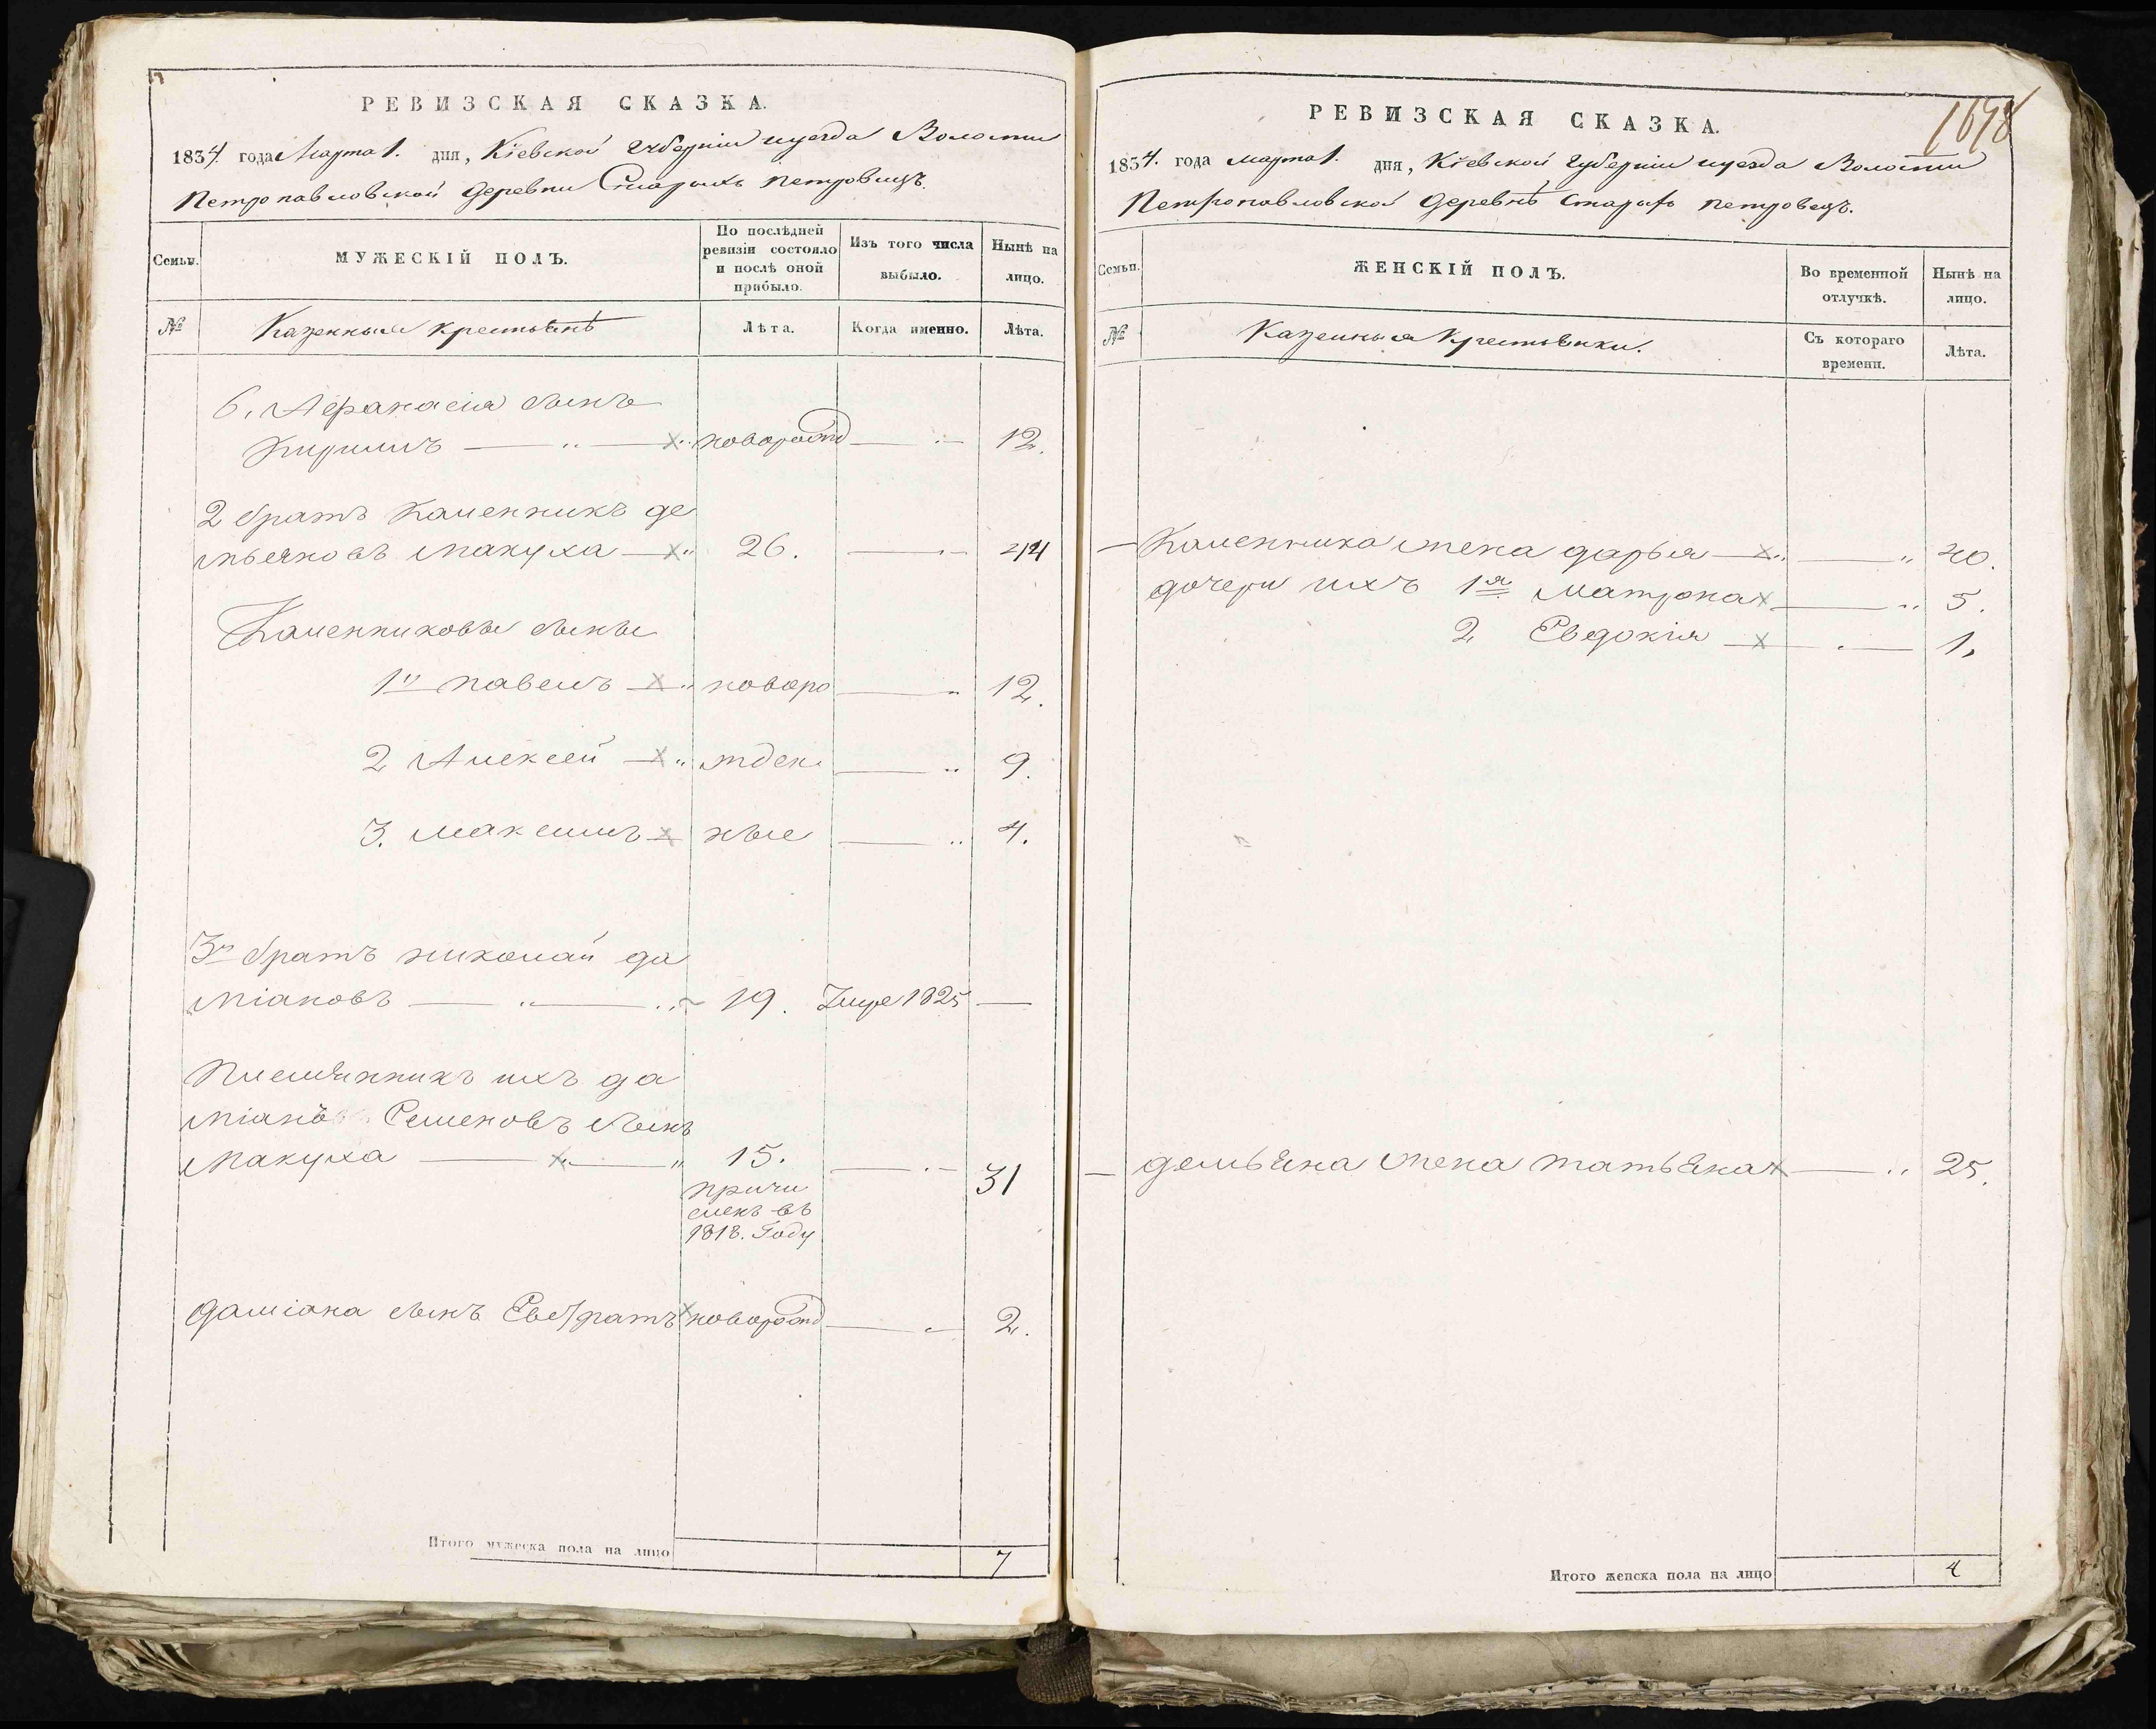 РЕВИЗСКАЯ СКАЗКА.
1834. года Марта 1. дня, Кіевской Губерніи и уезда Волости
Петропавловской деревни Старыхъ Петровецъ.
Семьи. МУЖЕСКІЙ ПОЛЪ. По послѣдней ревизіи состояло и послѣ оной прибыло. Изъ того числа выбыло. Нынѣ на лицо.
№ Казенныя крестьянѣ Лѣта. Когда именно. Лѣта.
6, Афанасія сынъ
Кирилъ новорожд 12.
2 братъ Каленникъ де
мьяновъ Макуха 26. 44
Каленниковы сыны
1й павелъ новоро 12.
2 Алексей жден 9.
3. Максимъ ные 4.
3й братъ николай да
міановъ 19. Умре 1825
Племянникъ ихъ да
міанъ Семеновъ сынъ
Макуха 15. 31
причи
сленъ въ
1818. Году
Даміана сынъ Евстратъ новорожд 2.
Итого мужеска пола на лицо 7
1698
РЕВИЗСКАЯ СКАЗКА.
1834. года марта 1. дня, Кіевской Губерніи и уезда Волости
Петропавловской деревнѣ Старыхъ петровецъ.
Семьи. ЖЕНСКІЙ ПОЛЪ. Во временной отлучкѣ. Нынѣ на лицо.
№ Казенныя Крестьянки. Съ котораго времени. Лѣта.
Каленника жена дарья 40.
дочери ихъ 1я Матрона 5.
2 Евдокія 1,
демьяна жена татьяна 25.
Итого женска пола на лицо 4